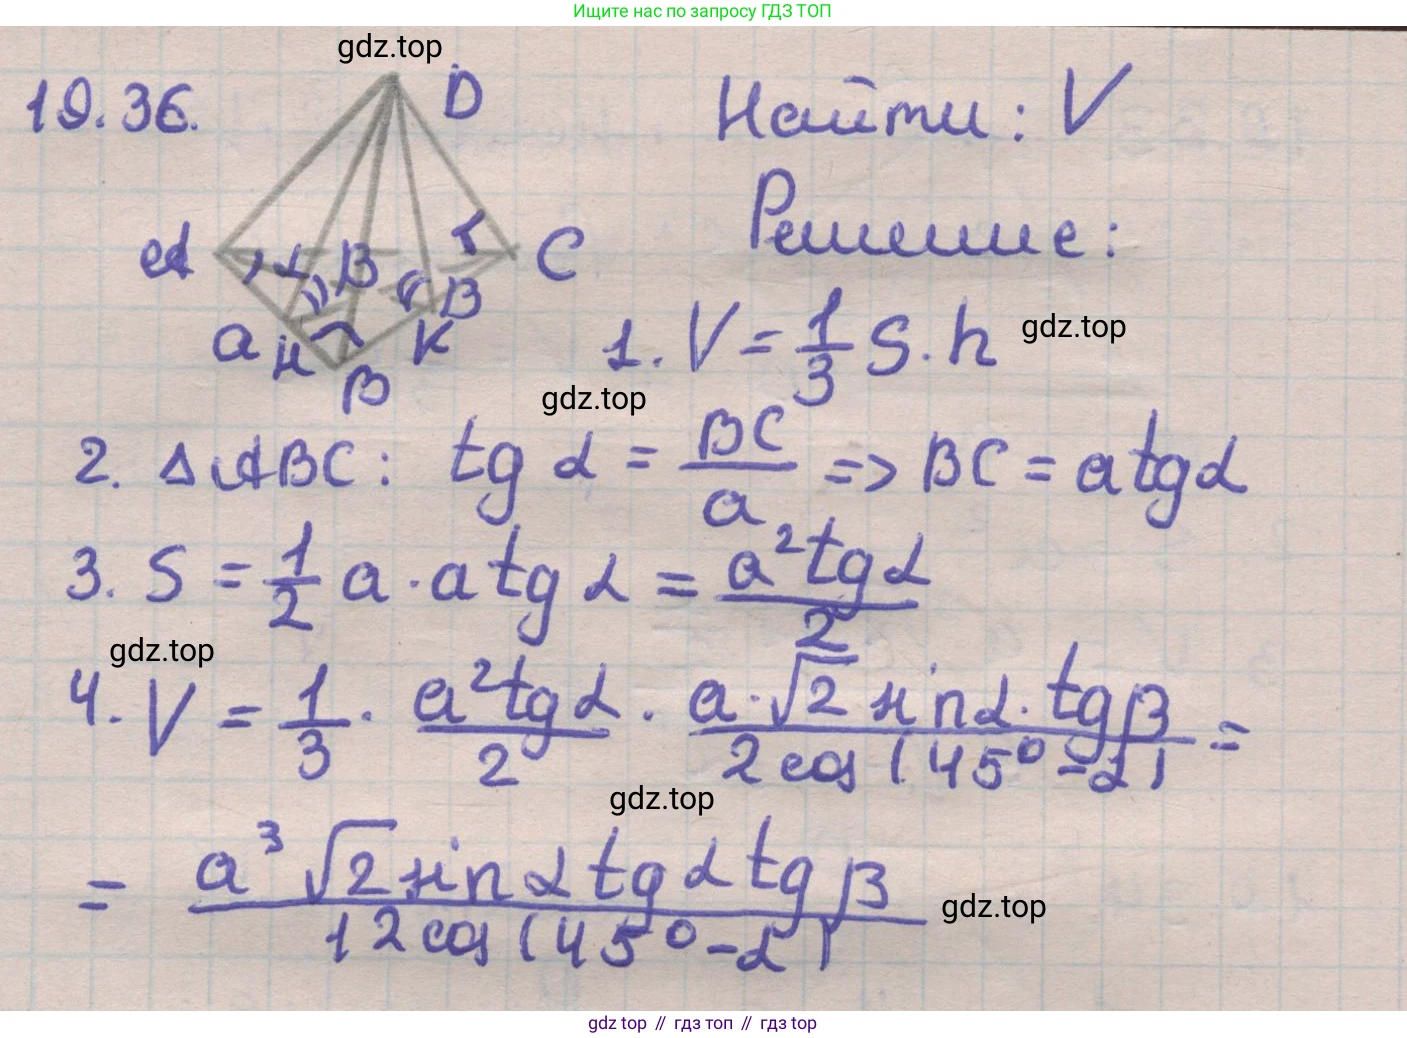 Ищите нас по запросу ГДЗ ТОП
gdz.top
19.36.
D
Найти: V
Решение:
A
β
C
a
H
β
K
B
1. V = 1/3 S · h
gdz.top
gdz.top
2. △ABC: tg α = BC/a => BC = a tg α
3. S = 1/2 a · a tg α = a² tg α/2
gdz.top
4. V = 1/3 · a² tg α/2 · a · √2 sin α · tg β/2 cos (45° - α) =
gdz.top
= a³ √2 sin α tg α tg β/12 cos (45° - α)
gdz.top
gdz top // гдз топ // гдз top